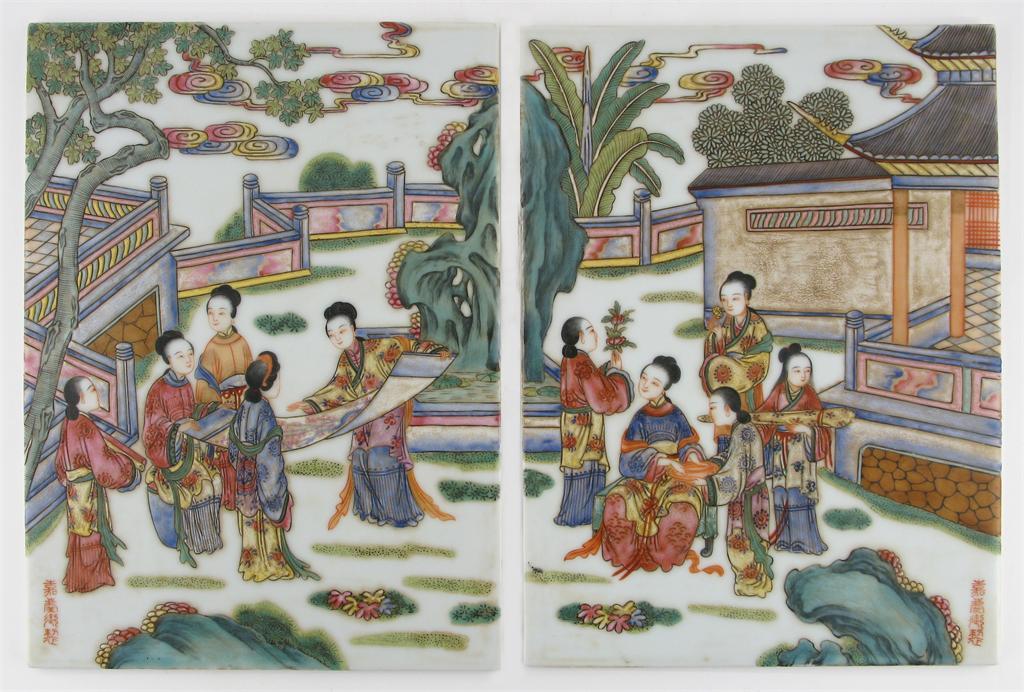 嘉慶御製
嘉慶御製